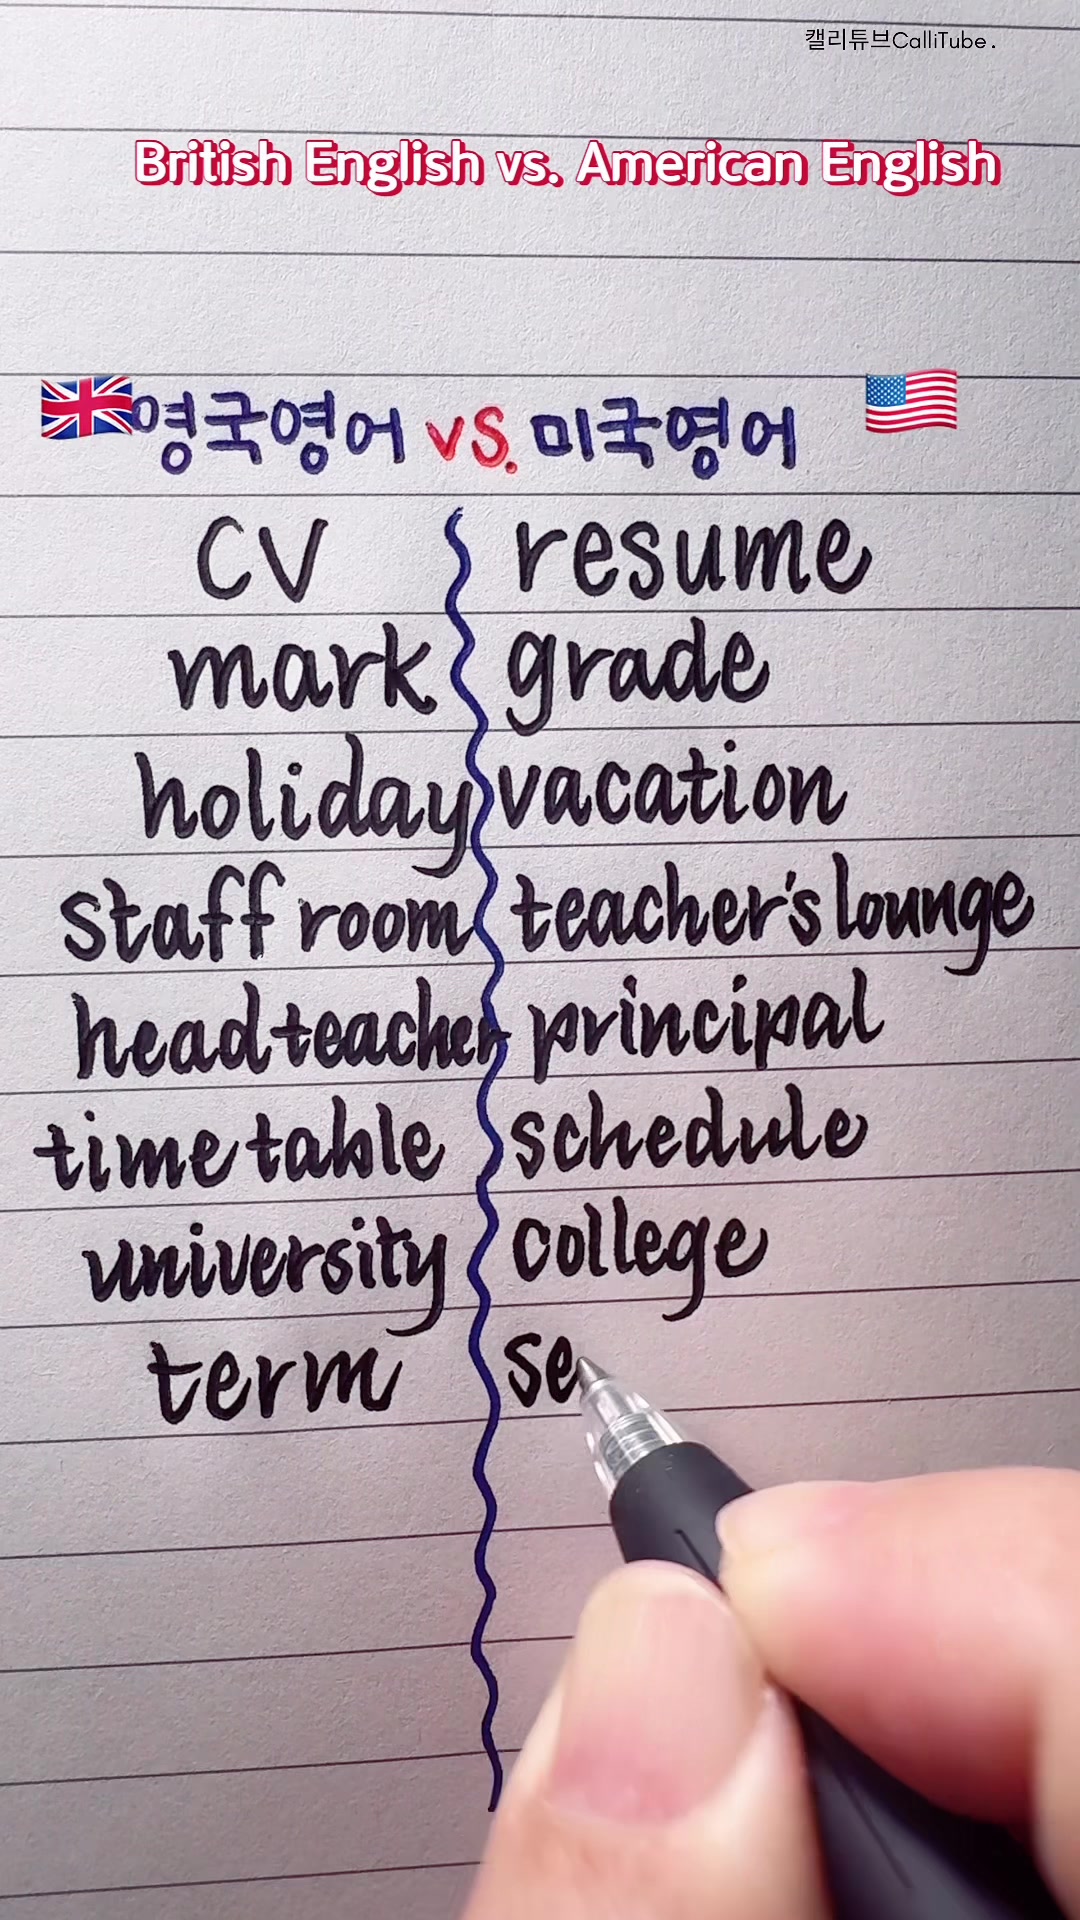 캘리튜브CalliTube.
British English vs. American English
영국영어 vs. 미국영어
CV resume
mark grade
holiday vacation
staff room teacher's lounge
head teacher principal
time table schedule
university college
term se